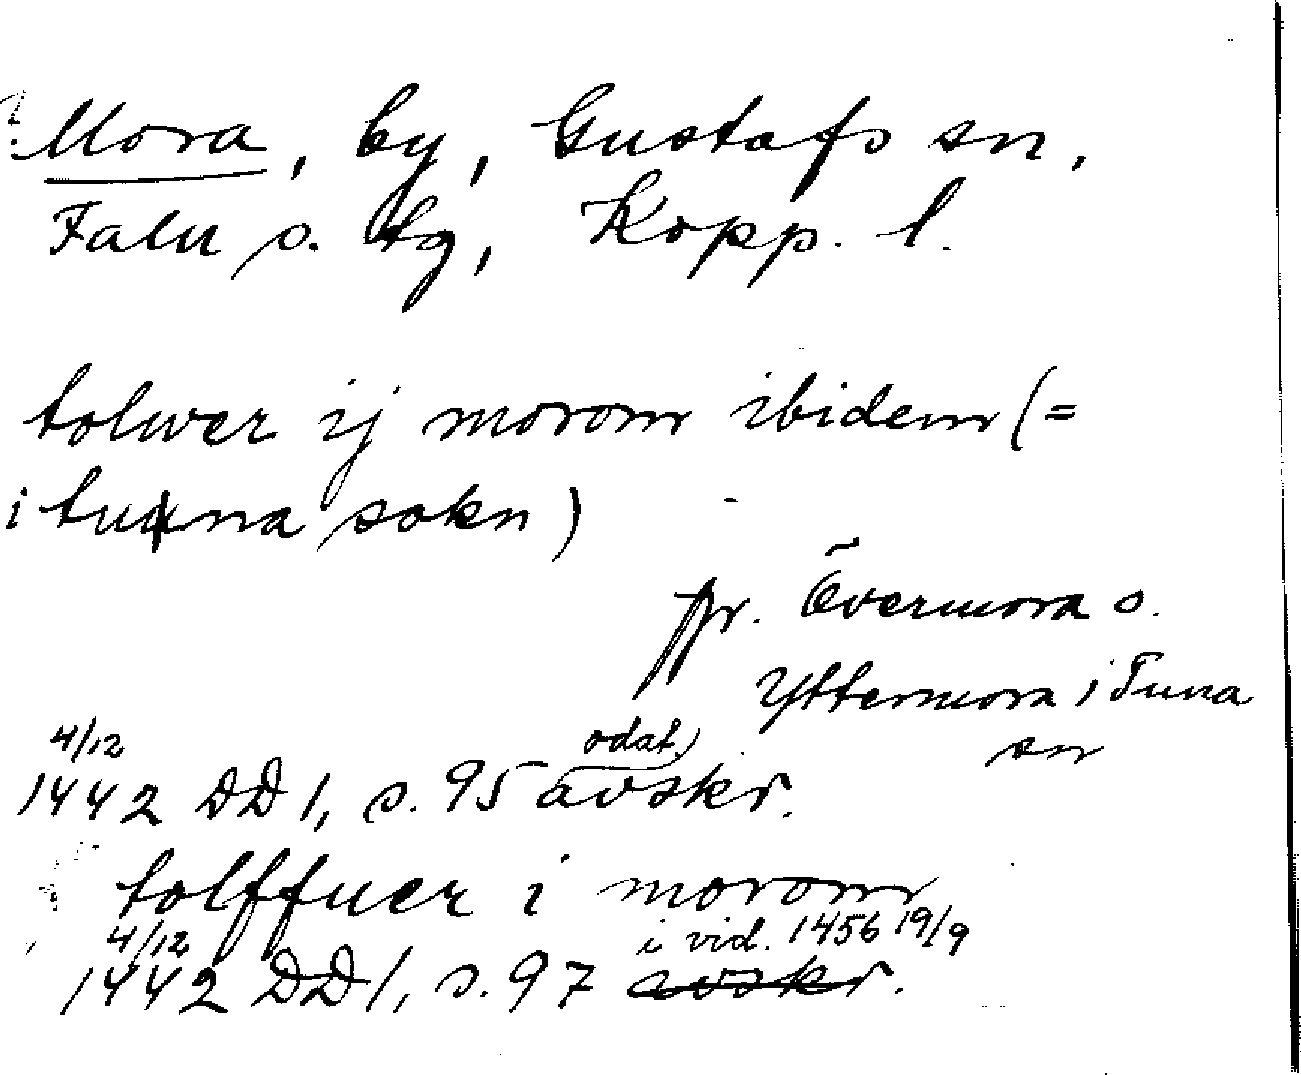 Mora, by, Gustafs sn,
Falu s. tg, Kopp. l.
tolwer ij morom ibidem (=
i tuna sokn)
pr. Övermora o.
Yttermora i Tuna
sn
4/12 odat.
1442 DD 1, s. 95 avskr.
tolffuer i morom
4/12 i vid. 1456 19/9
1442 DD 1, s. 97 avskr.